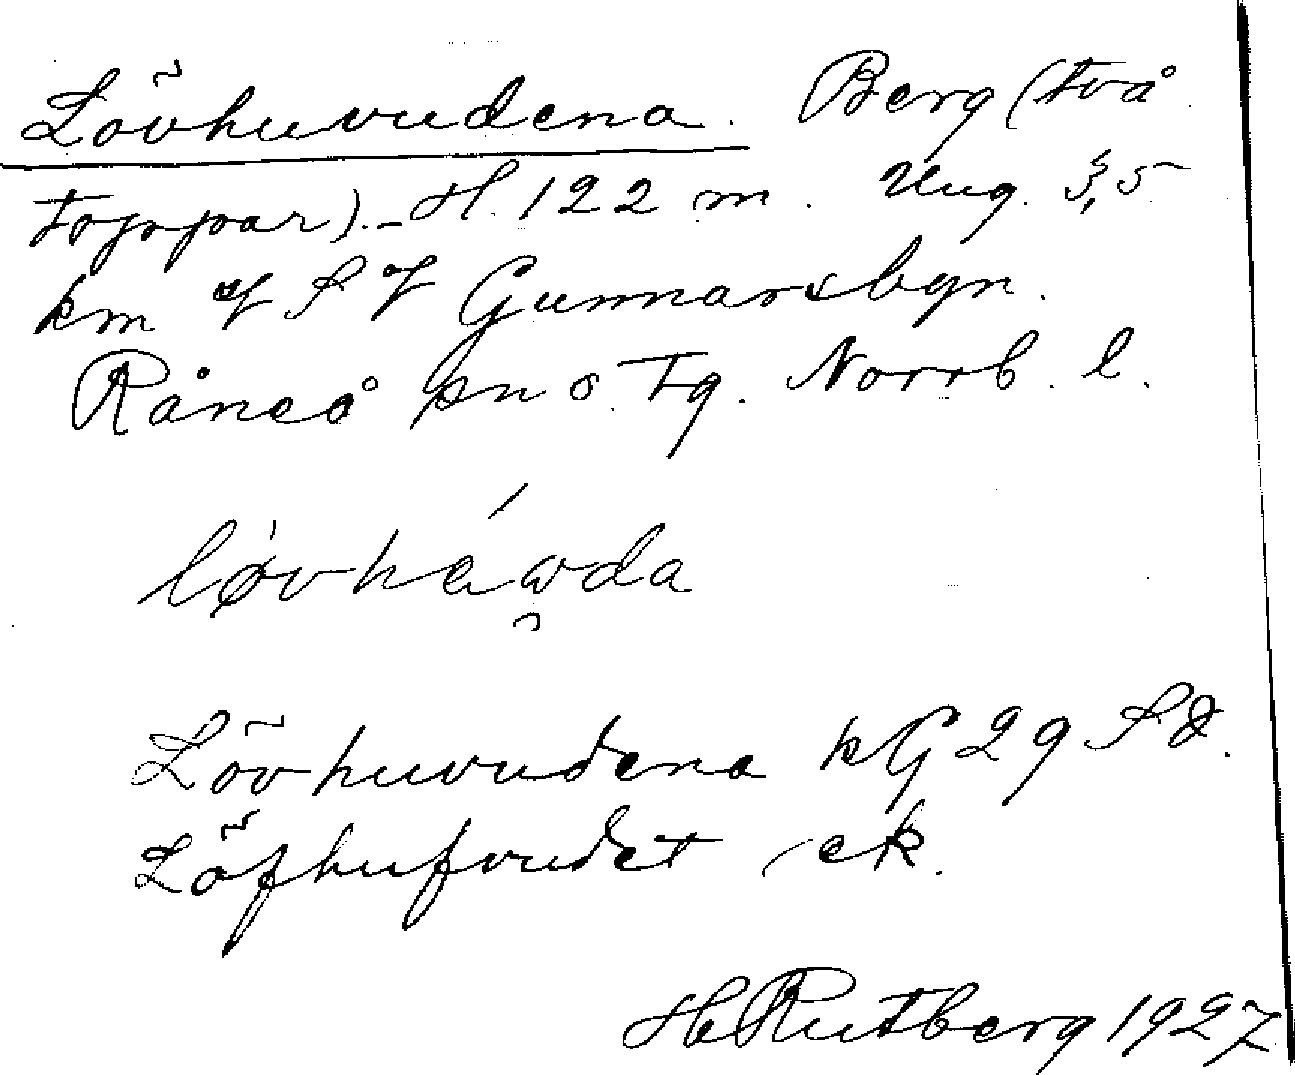 Lövhuvudena. Berg (två
toppar). - H. 122 m. Ung. 3,5
km V S V Gunnarsbyn.
Råneå sn o. tg. Norrb. l.
løvhéwda
Lövhuvudena kG 29 SO.
Löfhufvudet, ek.
H Rutberg 1927